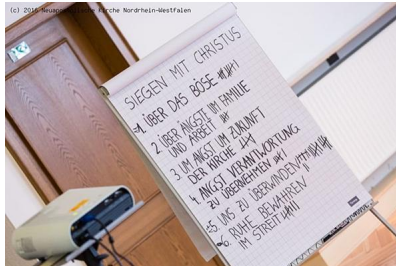 (c) 2016 Neuapostolische Kirche Nordrhein-Westfalen
SIEGEN MIT CHRISTUS
1. ÜBER DAS BÖSE
2. ÜBER ÄNGSTE IM FAMILIE
UND ARBEIT
3 UM ANGST UM ZUKUNFT
DER KIRCHE
4 ANGST VERANTWORTUNG
ZU ÜBERNEHMEN
5. UNS ZU ÜBERWINDEN
6. RUHE BEWAHREN
IM STREIT